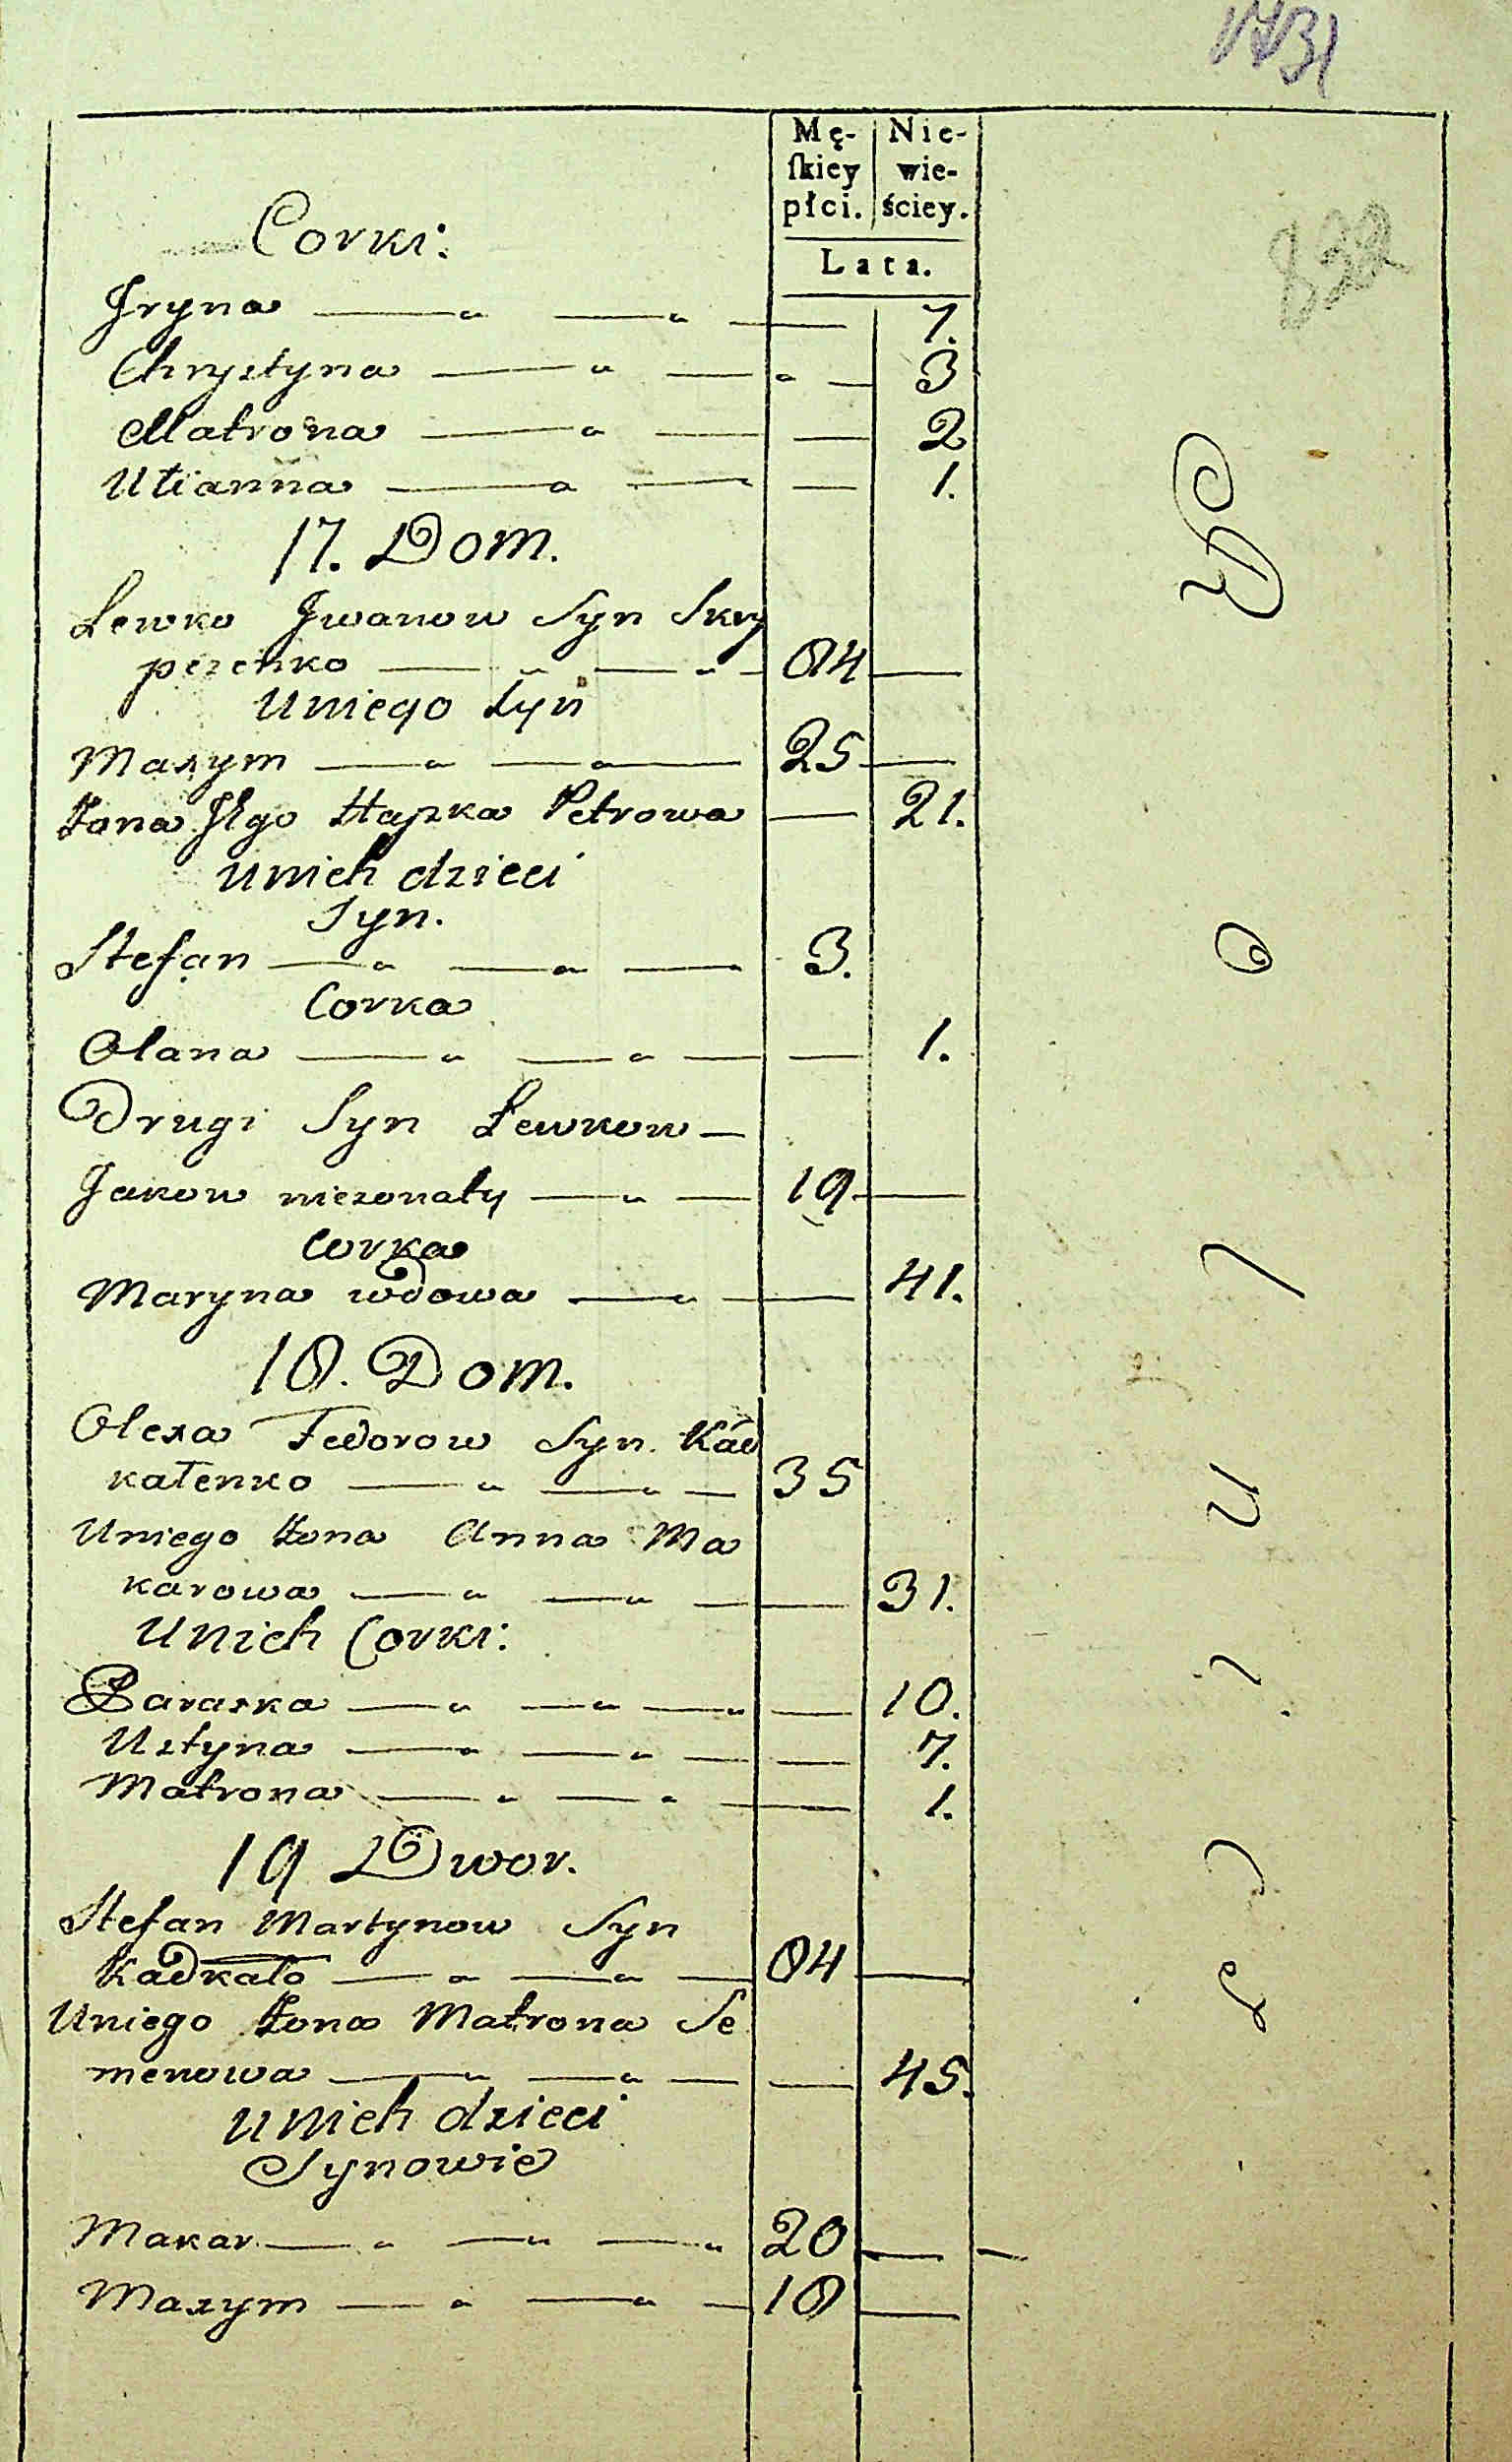 Mę- Nie-
ſkiey wie-
płci. ściey.
Lata.
Corki:
Jryna — „ — „ — 7.
Chrystyna — „ — „ — 3
Matrona — „ — — 2
Ulianna — „ — — 1.
17. Dom.
Lewko Jwanow Syn Skry
pczenko — „ — „ — 84 —
Uniego Syn
Maxym — „ — „ — 25 —
Żona Jego Hapka Petrowa — 21.
unich dzieci
Syn.
Stefan — „ — „ — 3.
Corka
Olana — „ — „ — — 1.
Drugi Syn Lewkow —
Jakow nieżonaty — „ — 19 —
Corka
Maryna wdowa — „ — 41.
18. Dom.
Olexa Fedorow Syn Kad
kałenko — „ — „ — 35
Uniego Żona Anna Ma
karowa — „ — „ — — 31.
Unich Corki:
Paraska — „ — „ — „ — 10.
Ustyna — „ — „ — — 7.
Matrona — „ — „ — 1.
19 Dwor.
Stefan Martynow Syn
Kadkało — „ — „ — 84 —
Uniego Żona Matrona Se
menowa — „ — „ — — 45.
unich dzieci
Synowie
Makar — „ — „ — „ 20 — —
Maxym — „ — „ — 18 —